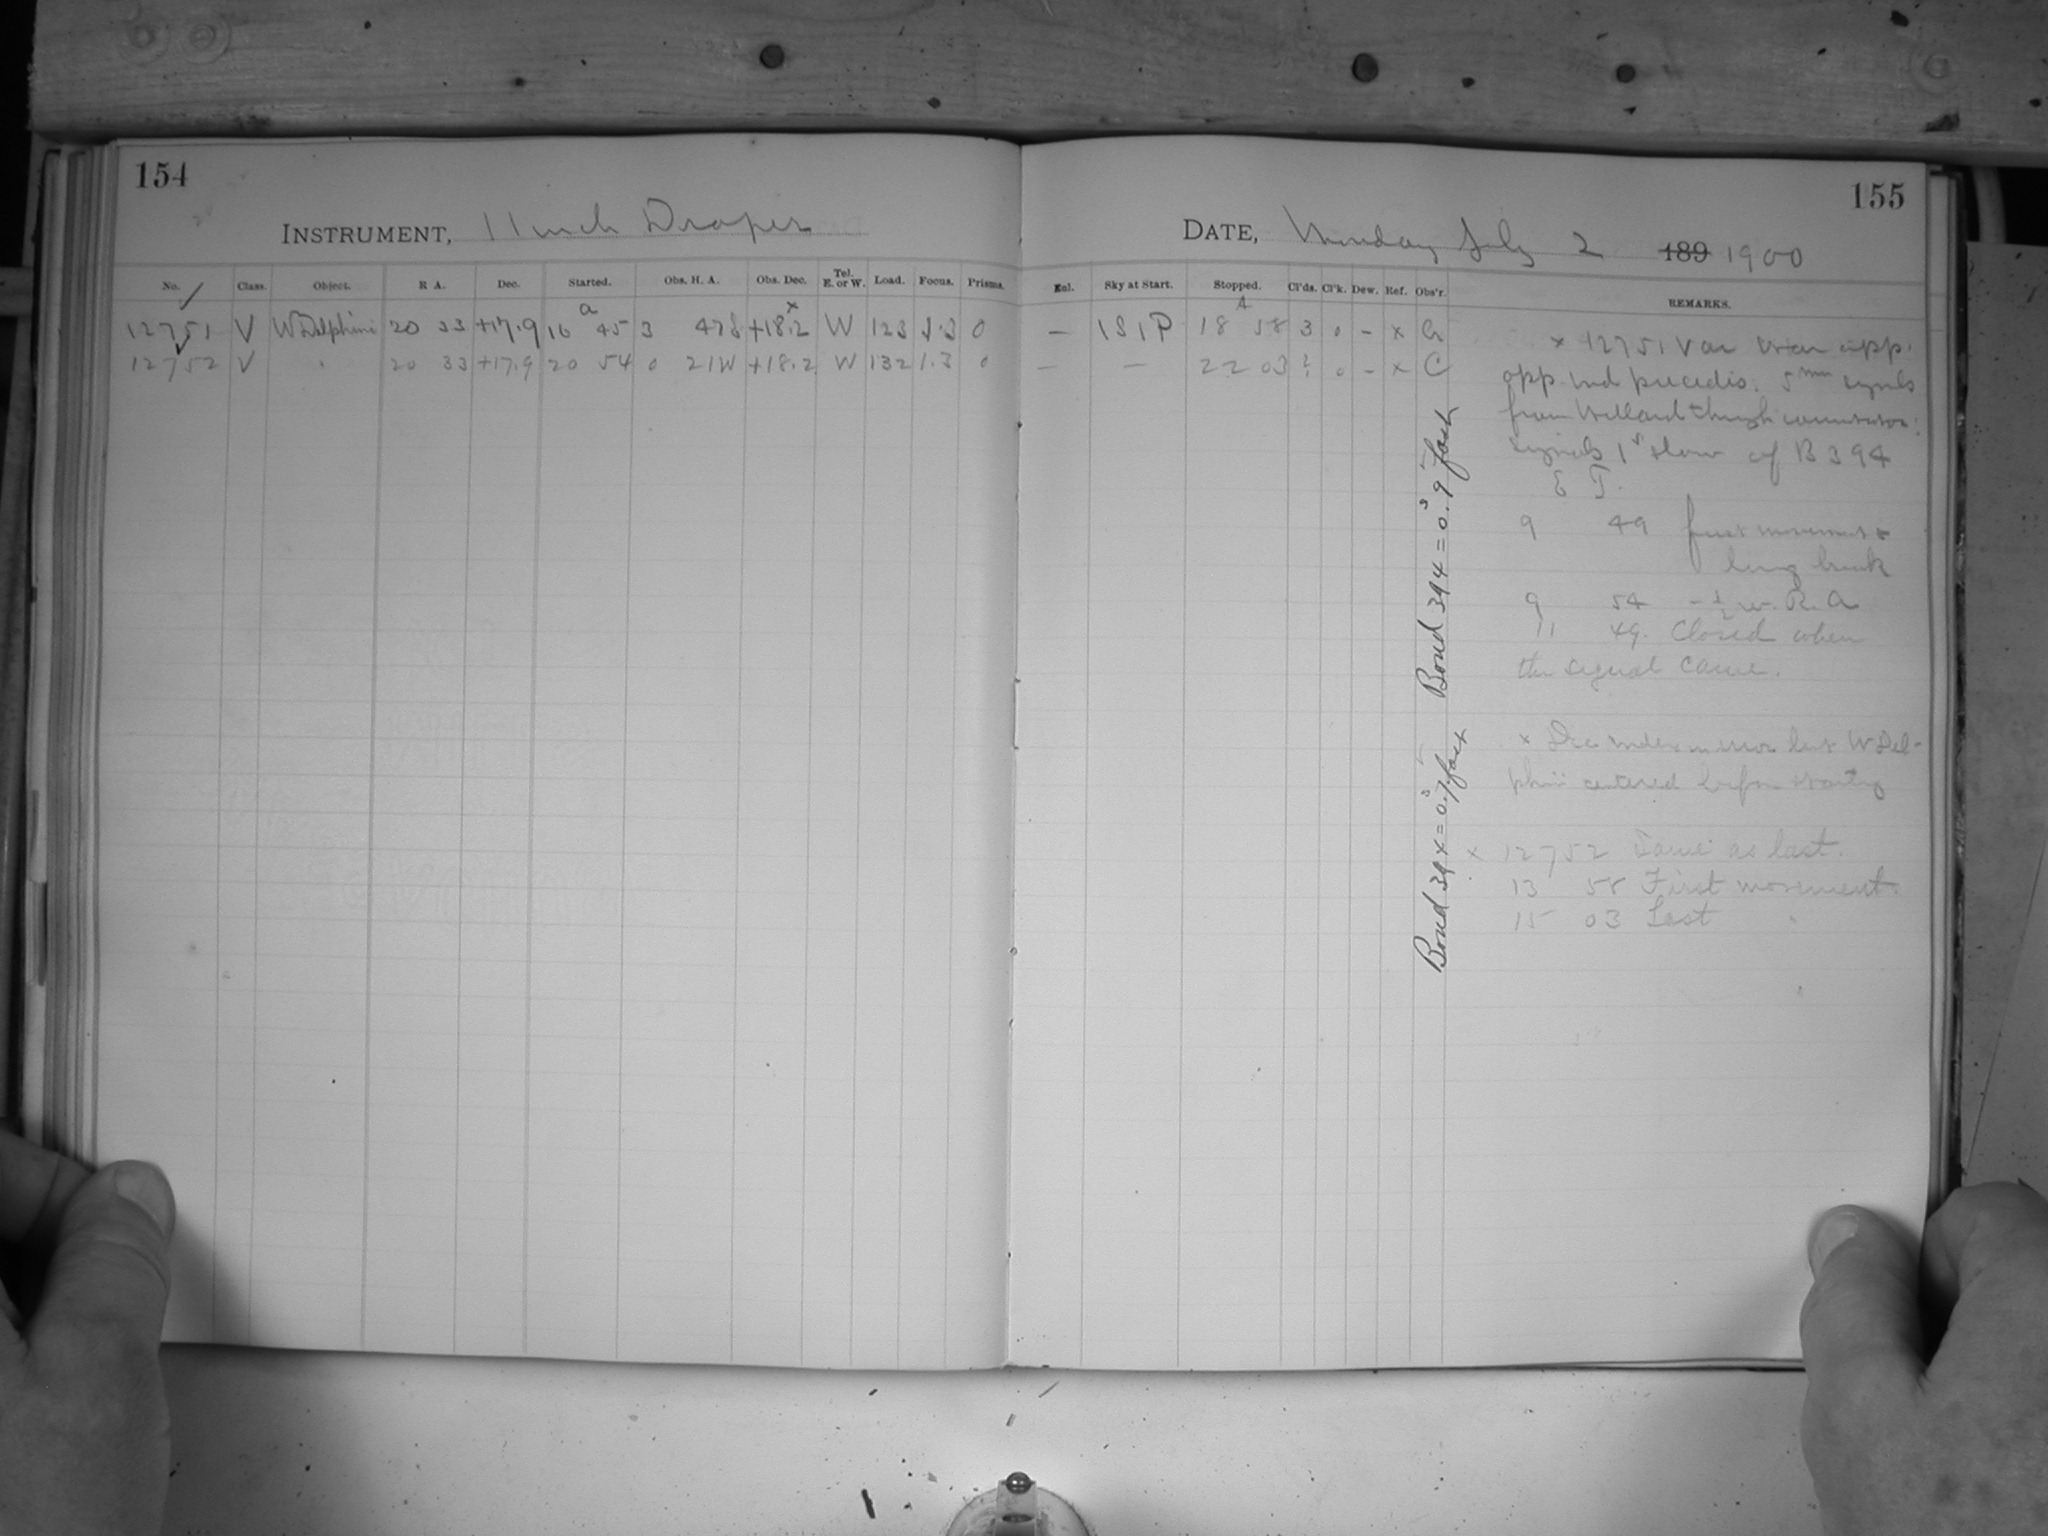 154
INSTRUMENT, 11 inch Draper
No. Class. Object. R A. Dec. Started. Obs. H. A. Obs. Dec. Tel. E. or W. Load. Focus. Prisms.
12751 V W Delphini 20 33 +17.9 16 45 3 47 +18.2 W 123 1.3 0
12752 V " 20 33 +17.9 20 54 0 21W +18.2 W 132 1.3 0
155
DATE, Monday July 2 189 1900
Sky at Start. Stopped. Cl'ds. Cl'k. Dew. Ref. Obs'r. REMARKS.
— 1S1P 18 58 3 0 - x G
— — 22 03 ? 0 - x C
x 12751 Var app.
opp. and precedes. 5mm
from Willard through
signals 1s slow of B 394
E T.
9 49 first movement &
long break
9 54 - ½ w. R. A
11 49. Closed when
the signal came.
x Dec index in error but W Del-
phini centered before starting
x 12752 Same as last.
13 58 First movement.
15 03 Last "
Bond 394 = 0.s9 fast
Bond 394 = 0.s7 fast